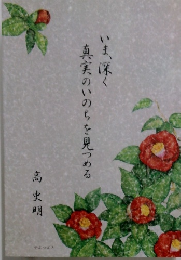 いま、深く
真実のいのちを見つめる
高史明